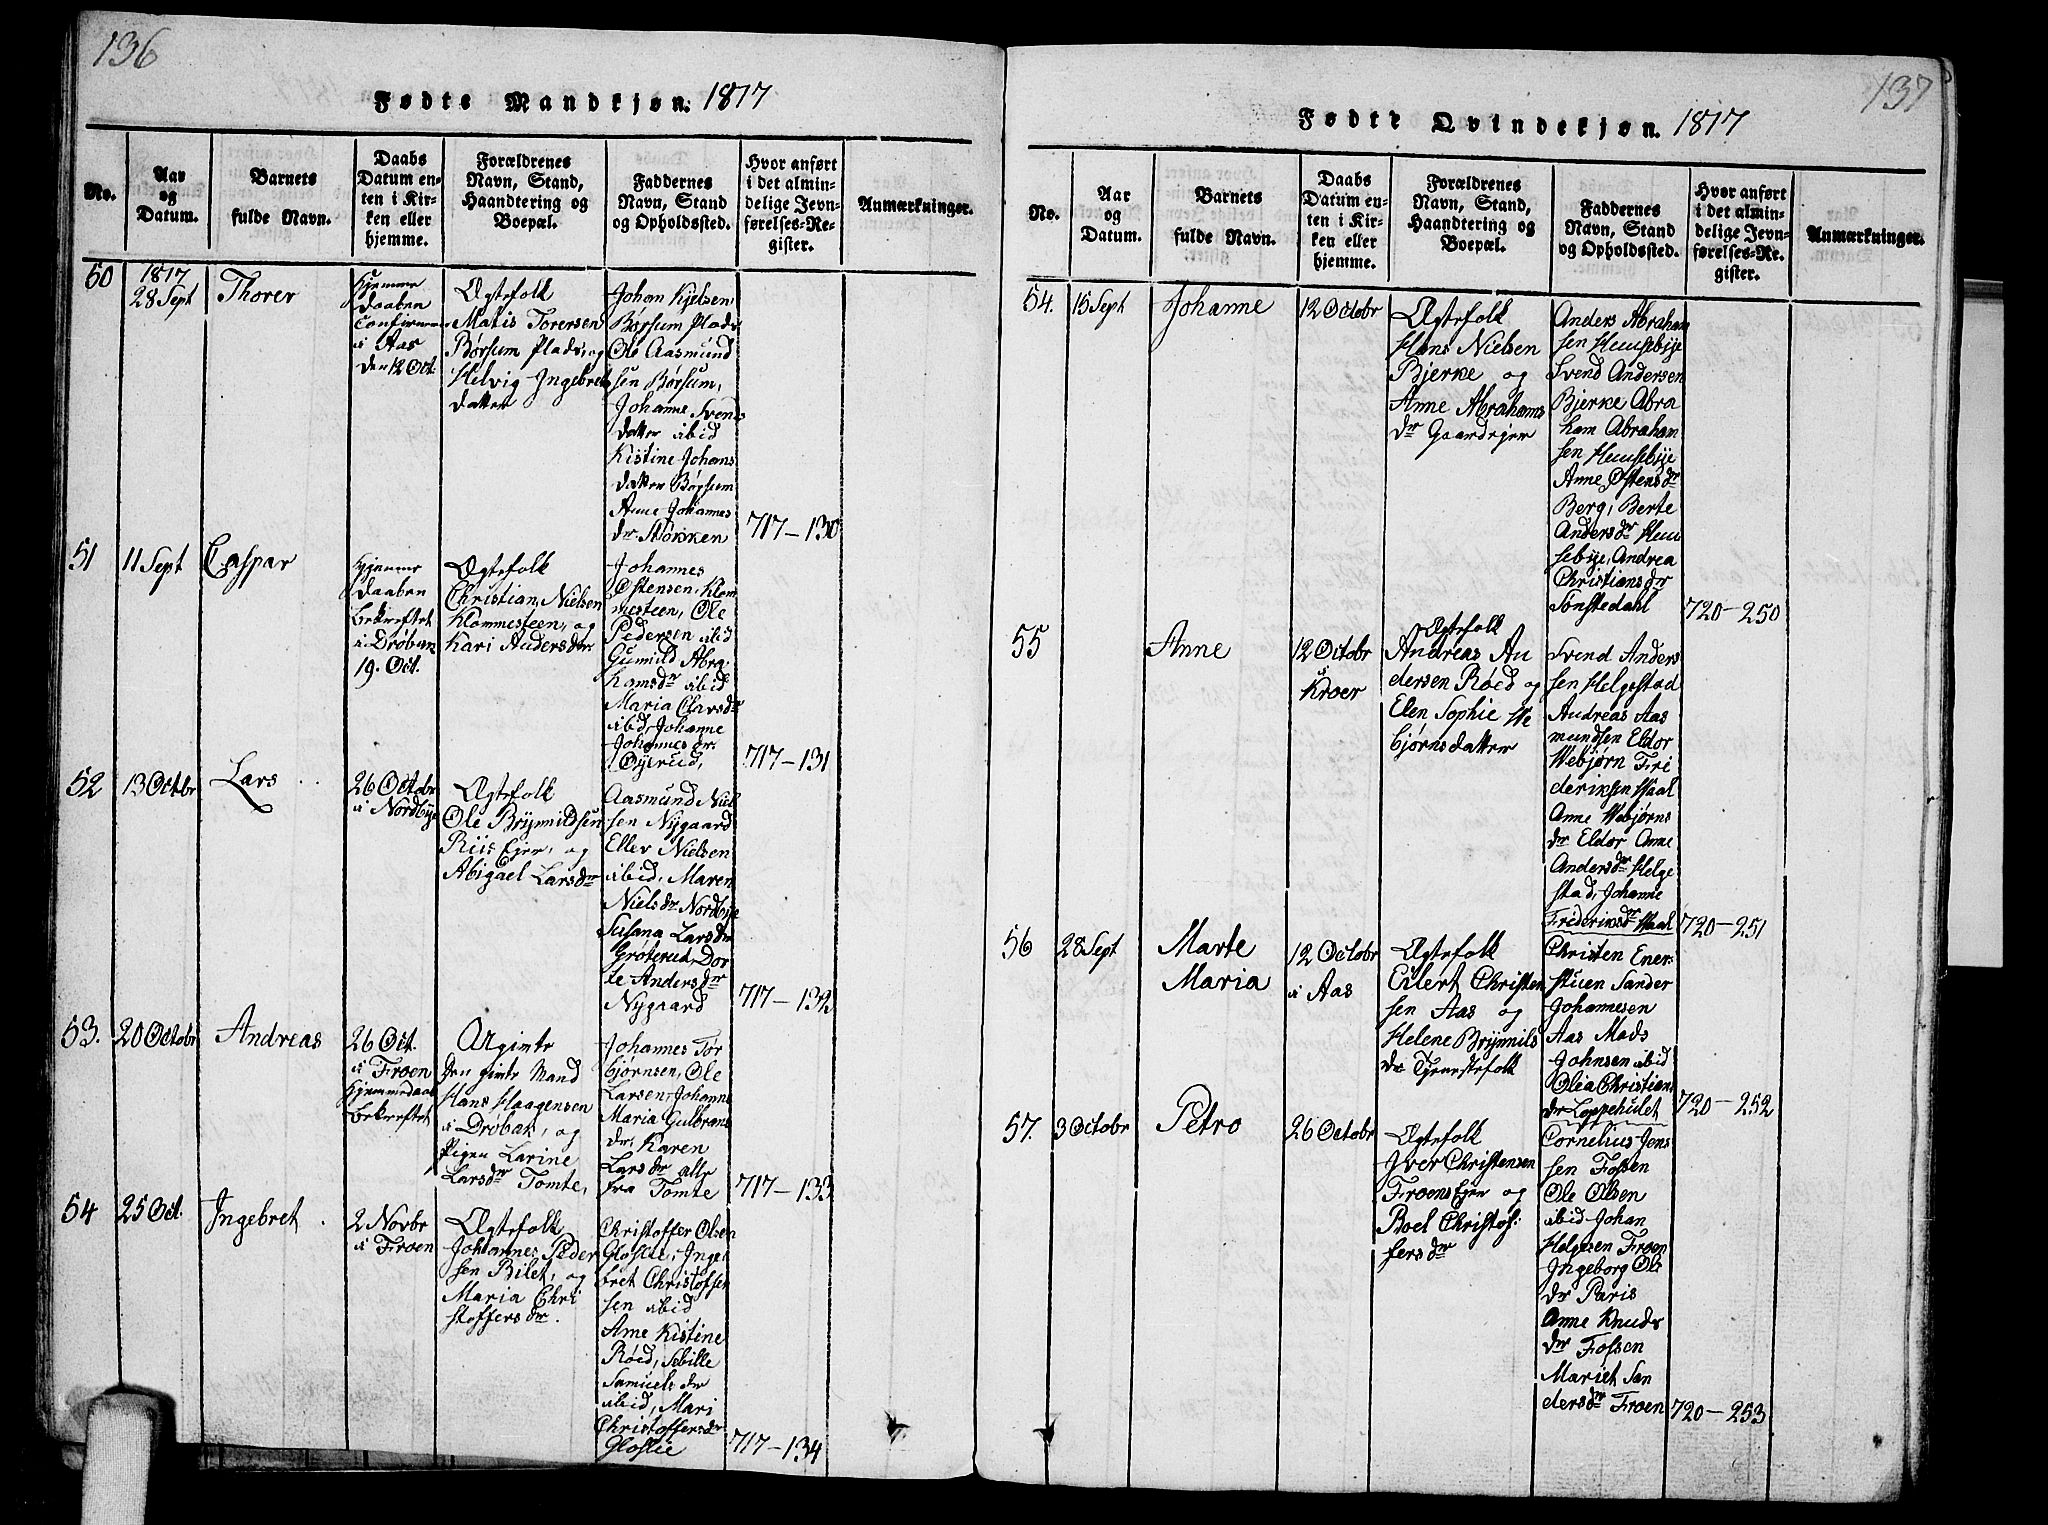 136
Fødte Mandkjøn. 1817
No.
Aar
og
Datum.
Barnets
fulde Navn.
Daabs
Datum en-
ten i Kir-
ken eller
hjemme.
Forældrenes
Navn, Stand,
Haandtering og
Boepæl.
Faddernes
Navn, Stand
og Opholdssted.
Hvor anført
i det almin-
delige Jevn-
førelses-Re-
gister.
Anmærkninger.
50
1817
28 Sept
Thorer
Hjemme
daaben
Confirme
i Aas
den 12 Oct.
Ægtefolk
Matis Torersen
Børsum Plads, og
Helvig Ingebrets
datter
Johan Kjelsen
Børsum Plads
Ole Aasmund
sen Børsum,
Johanne Svends
datter ibid
Kistine Johans
datter Børsum
Anne Johannes
dr Støkken
717-130
51
11 Sept
Caspar
Hjemme
daaben
bekreftet
i Drøbak
19. Oct.
Ægtefolk
Christian Nielsen
Klommesteen, og
Kari Andersdr
Johannes
Østensen, Klom
mesteen, Ole
Pedersen ibid
Gunild Abra
hamsdr ibid
Maria Clavsdr
ibid, Johanne
Johannesdr
Øyerud,
717-131
52
13 Octbr
Lars
26 Octobr
i Nordbye
Ægtefolk
Ole Brynnildsen
Riis Ejer, og
Abigael Larsdr
Aasmund Niel
sen Nygaard
Ellev Nielsen
ibid, Maren
Nielsdr Nordbye
Susana Larsdr
Grøterud, Dor
te Andersdr
Nygaard
717-132
53.
20 Octobr
Andreas
26 Oct.
i Froen
Hjemmedaab
bekreftet
Uægte
den givte Mand
Hans Haagensen
i Drøbak, og
Pigen Larine
Larsdr Tomte,
Johannes Tor
bjørnsen, Ole
Larsen, Johanne
Maria Gulbrans
dr, Karen
Larsdr alle
fra Tomte
717-133
54
25 Oct.
Ingebret
2 Novbr
i Froen
Ægtefolk
Johannes Peder
sen Bilet, og
Maria Chri
stoffersdr.
Christoffer Olsen
Gloslie, Inge
bret Christofsen
sen ibid
Anne Kistine
Røed, Sebille
Samuelsdr
ibid, Mari
Christoffersdr
Gloslie
717-134
137
Fødte Qvindekjøn. 1817
No.
Aar
og
Datum.
Barnets
fulde Navn.
Daabs
Datum en-
ten i Kir-
ken eller
hjemme.
Forældrenes
Navn, Stand,
Haandtering og
Boepæl.
Faddernes
Navn, Stand
og Opholdssted.
Hvor anført
i det almin-
delige Jevn-
førelses-Re-
gister.
Anmærkninger.
54.
15 Sept
Johanne
12 Octobr
Ægtefolk
Hans Nielsen
Bjerke og
Anne Abrahams
dr Gaardejer
Anders Abraham
sen Hensebye
Svend Andersen
Bjerke Abra
ham Abraham
sen Hensebye
Anne Østensdr
Berg, Berte
Andersdr Hen
sebye, Andrea
Christiansdr
Sønstedahl
720-250
55
Anne
12 Octobr
i
Kroer
Ægtefolk
Andreas An
dersen Røed og
Elen Sophie We
bjørnsdatter
Svend Anders
sen Helgestad
Andreas Aas
mundsen Eldor
Webjørn Fri
deriksen Haal
Anne Webjørns
dr Eldor Anne
Andersdr Helge
stad, Johanne
Frederiksdr Haal
720-251
56
28 Sept
Marte
Maria
12 Octobr
i Aas
Ægtefolk
Eilert Christen
sen Aas og
Helene Brynnils
dr Tjenestefolk
Christen Ener
stuen Sander
Johannesen
Aas Mads
Johnsen ibid
Olea Christians
dr Loppehulet
720-252
57.
3 Octobr
Petro
26 Octobr
Ægtefolk
Iver Christensen
Froens Ejer og
Boel Christof:
fersdr
Cornelius Jens
sen Fossen
Ole Olsen
ibid Johan
Helgesen Froen
Ingeborg Ole
dr Paris
Anne Knuds
dr Fossen
Mariet San
dersdr Froen
720-253